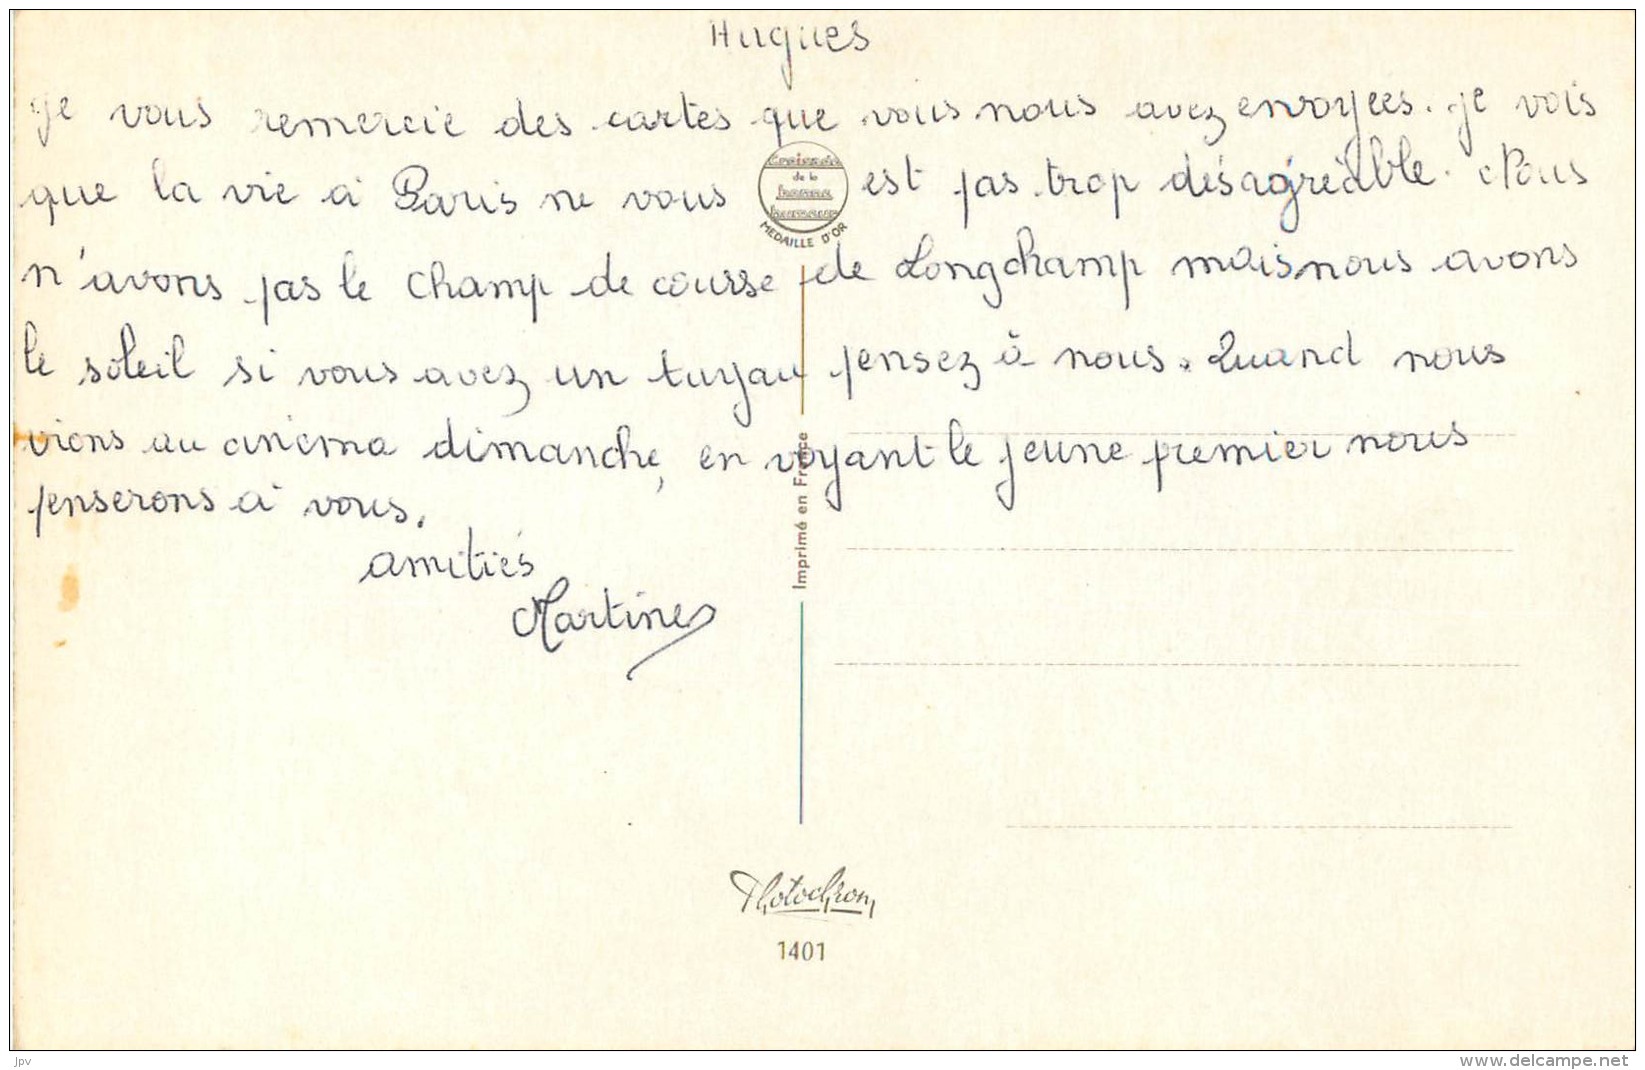 Hugues
Je vous remercie des cartes que vous nous avez envoyées. Je vois
que la vie à Paris ne vous est pas trop désagréable. Nous
Croisade
de la
bonne
humeur
MEDAILLE D'OR
n'avons pas le champ de course de Longchamp mais nous avons
le soleil si vous avez un tuyau pensez à nous. Quand nous
irons au cinéma dimanche, en voyant le jeune premier nous
penserons à vous.
amitiés
Martine
Imprimé en France
Photochrom
1401
jpv
www.delcampe.net